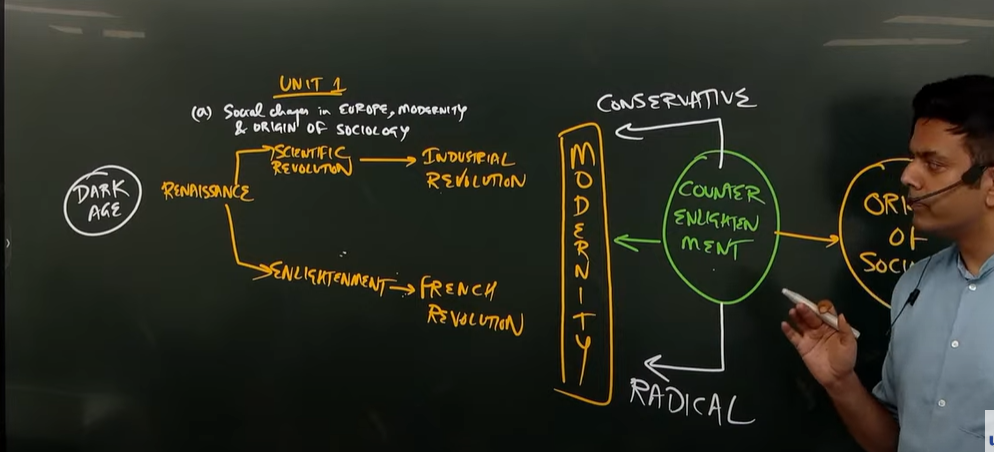 UNIT 1
(a) Social changes in EUROPE, MODERNITY
& ORIGIN OF SOCIOLOGY
DARK
AGE
RENAISSANCE
SCIENTIFIC
REVOLUTION
INDUSTRIAL
REVOLUTION
ENLIGHTENMENT
FRENCH
REVOLUTION
MODERNITY
CONSERVATIVE
COUNTER
ENLIGHTEN
MENT
RADICAL
OF